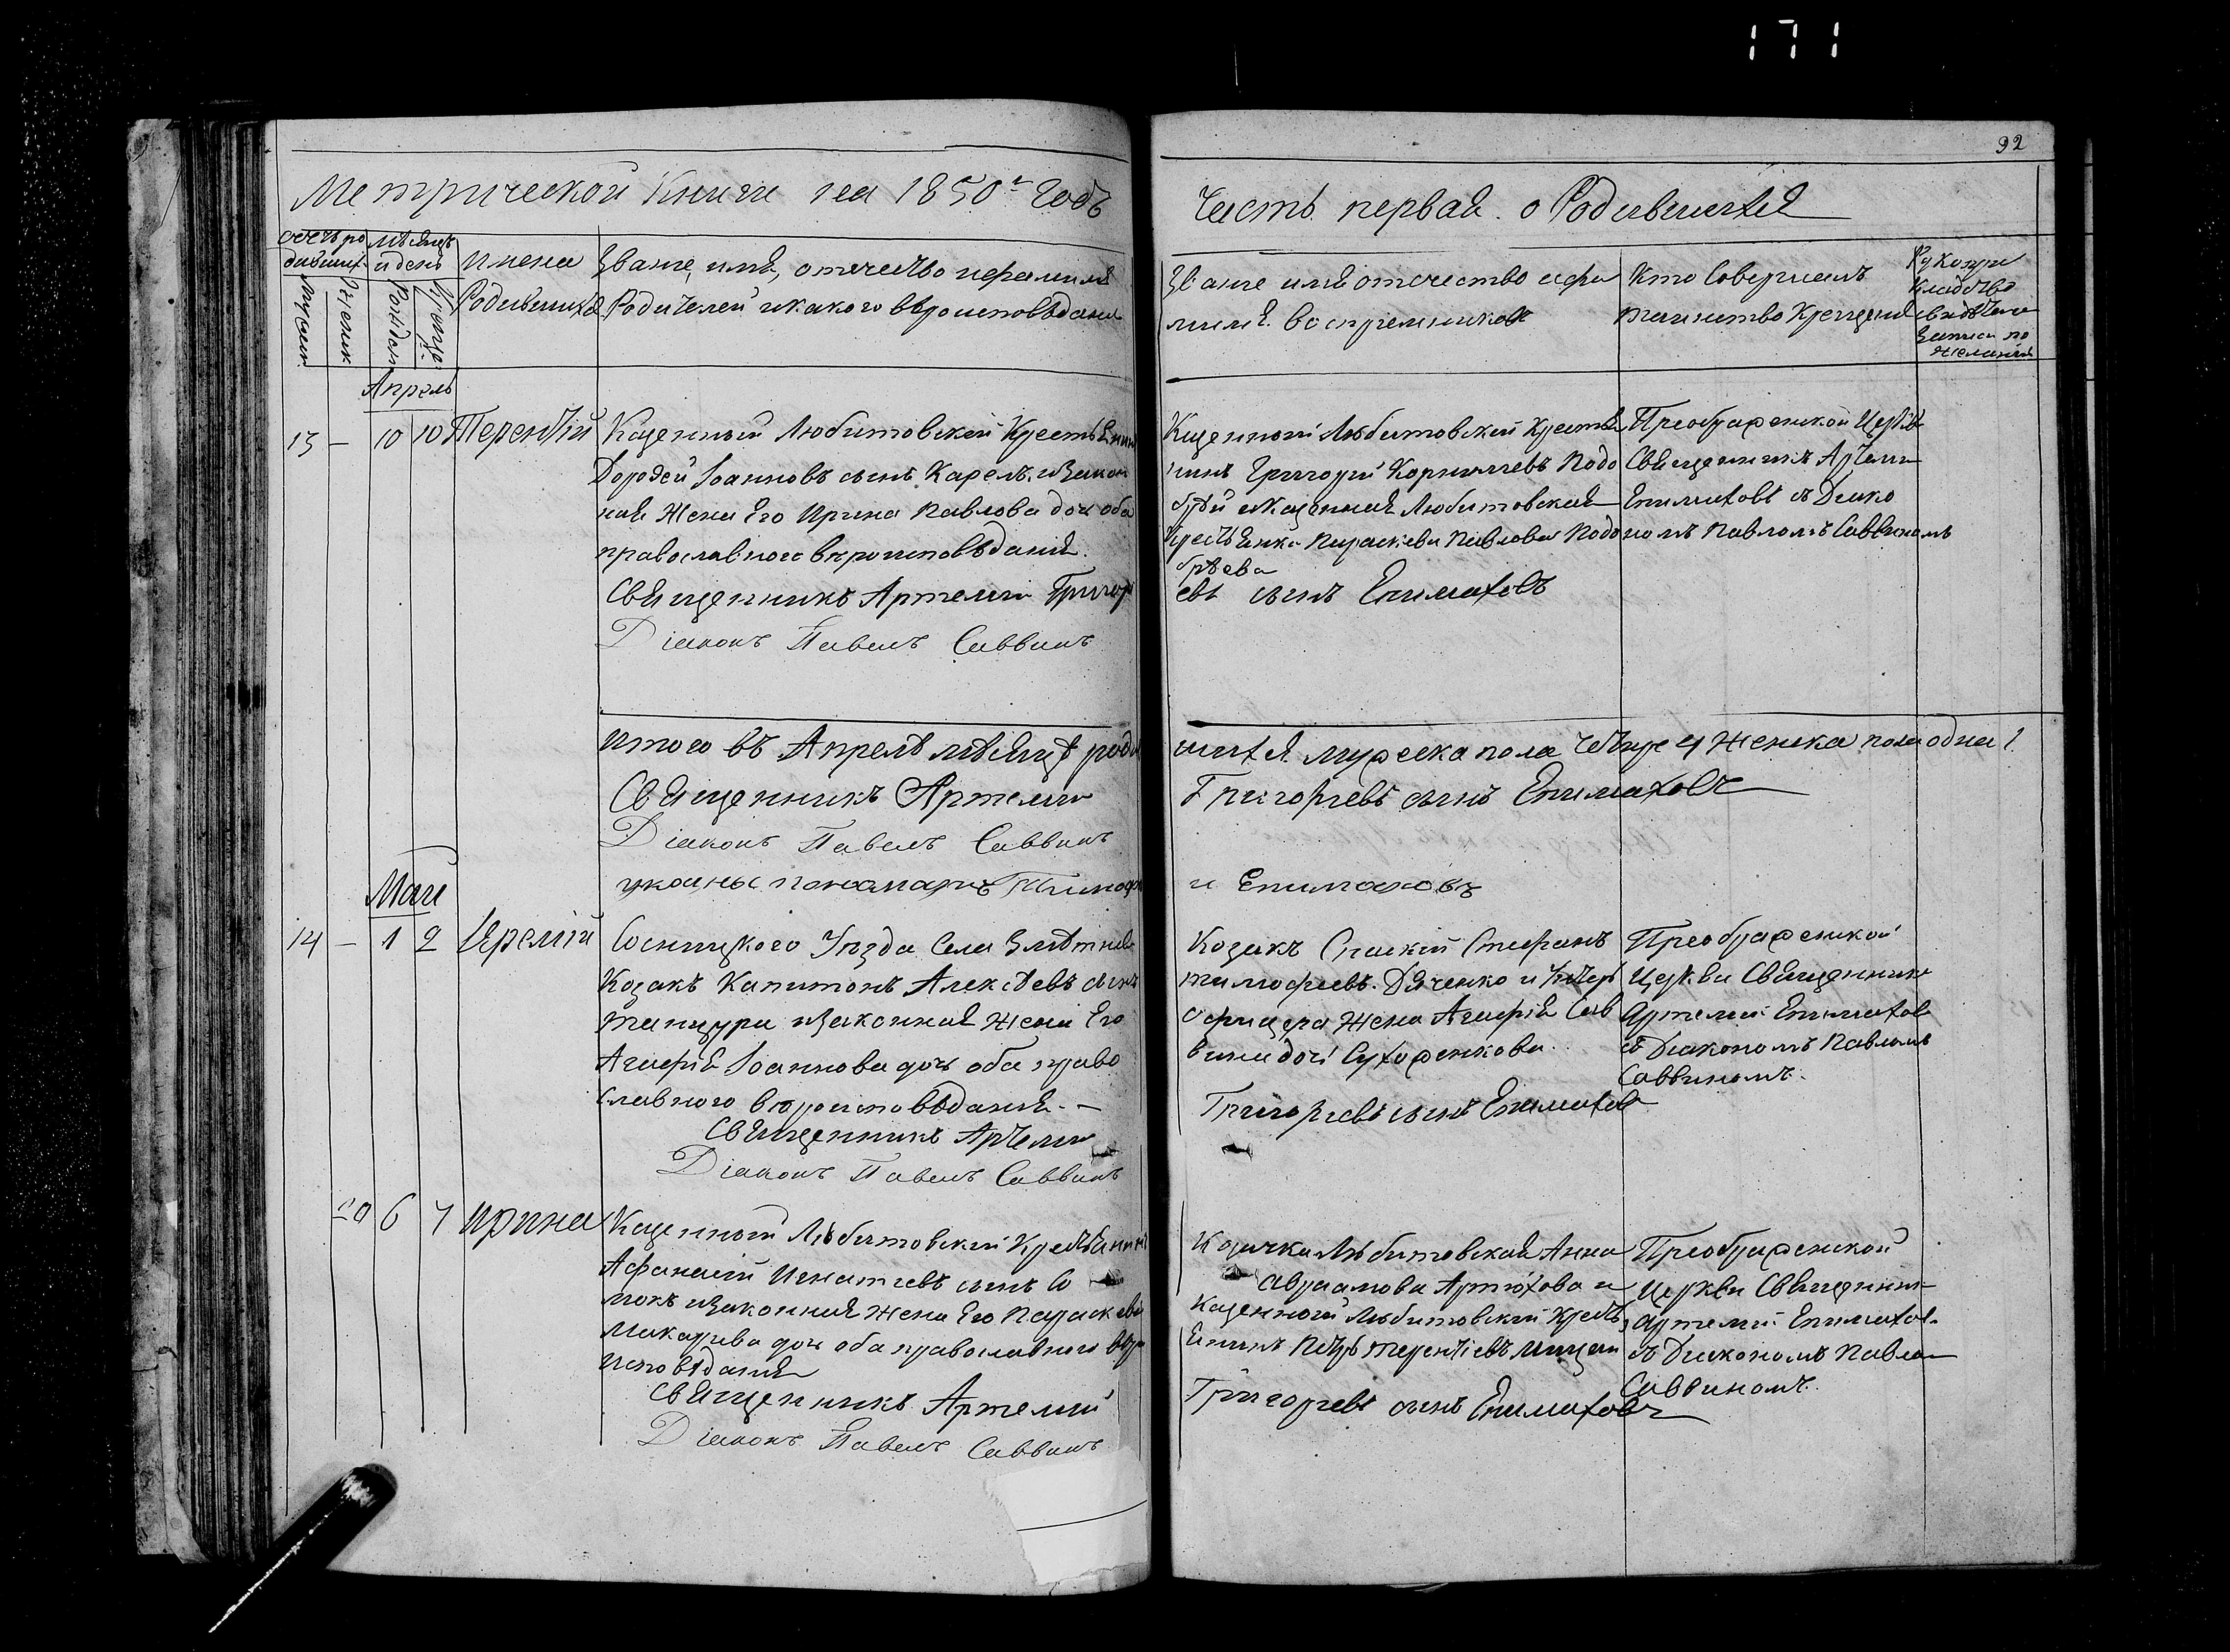 171
92
Метрической Книги на 1850 г Годъ
Часть первая о Родившихся
Мѣсяцъ
и день
Имена
Родившихся
Званіе, имя, отечество и фамилія
Родителей и какого вѣроисповѣданія
Званіе имя отечество и фа
милія воспріемниковъ
Кто Совершалъ
таинство Крещенія
Рукопри
кладство
свидѣтелей
Записи по
желанію
Апрель
13 – 10 10 Терентій
Казенный Любитовскій Крестьянинъ
Дорофей Іоанновъ сынъ Карелъ и Закон
ная Жена Его Ирина Павлова доч оба
православного вѣроисповѣданія.
Священникъ Артемий Григор
Діаконъ Павелъ Саввинъ
Казенной Любитовский Крестья
нинъ Григорий Корнилиевъ Подо
Крестьянка Параскева Павлова Подо
брѣева
евъ сынъ Епимаховъ
Преображенской Церкви
Священникъ Артемий
Епимаховъ съ Диако
номъ Павломъ Саввиномъ
Итого въ Апрелѣ мѣсяцѣ роди
Священникъ Артемий
Діаконъ Павелъ Саввинъ
пономарь Тимоф
шихся мужеска пола четыре 4 Женска пола одна 1.
Григорьевъ сынъ Епимаховъ
и Епимаховъ
Май
14 – 1 2 Иремій
Сосницкого Уѣзда Села Змѣтнева
Козакъ Капитонъ Алексѣевъ сынъ
Танцура и Законная Жена Его
Агафія Іоаннова доч оба право
славного вѣроисповѣданія. –
Священникъ Артемий
Діаконъ Павелъ Саввинъ
Козакъ Спаский Стефанъ
Тимофеевъ Дяченко и Унтеръ
офицера Жена Агафія Сав
вина доч Сухоженкова.
Григорьевъ сынъ Епимахов
Преображенской
Церкви Священникъ
Артемий Епимахов
съ Диакономъ Павломъ
Саввиномъ.
20 6 7 Ирина
Казенной Любитовский Крестьянинъ
Афанасий Игнатиевъ сынъ Со
мокъ и Законная Жена Его Параскева
Макариева доч оба православного вѣро
исповѣданія
Священникъ Артемий
Діаконъ Павелъ Саввинъ
Козачка Любитовская Анна
Авраамова Артюхова и
Казенной Любитовский Кресть
янинъ Петръ Терентіевъ Мицан
Григорьевъ сынъ Епимаховъ
Преображенской
Церкви Священник
Артемий Епимахов
съ Диакономъ Павлом
Саввиномъ.